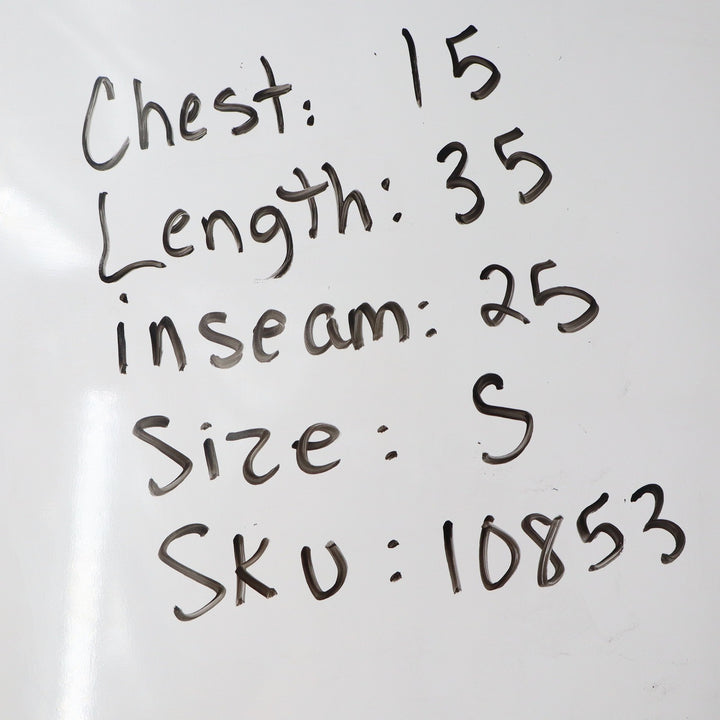 Chest: 15
Length: 35
inseam: 25
Size: S
SKU: 10853